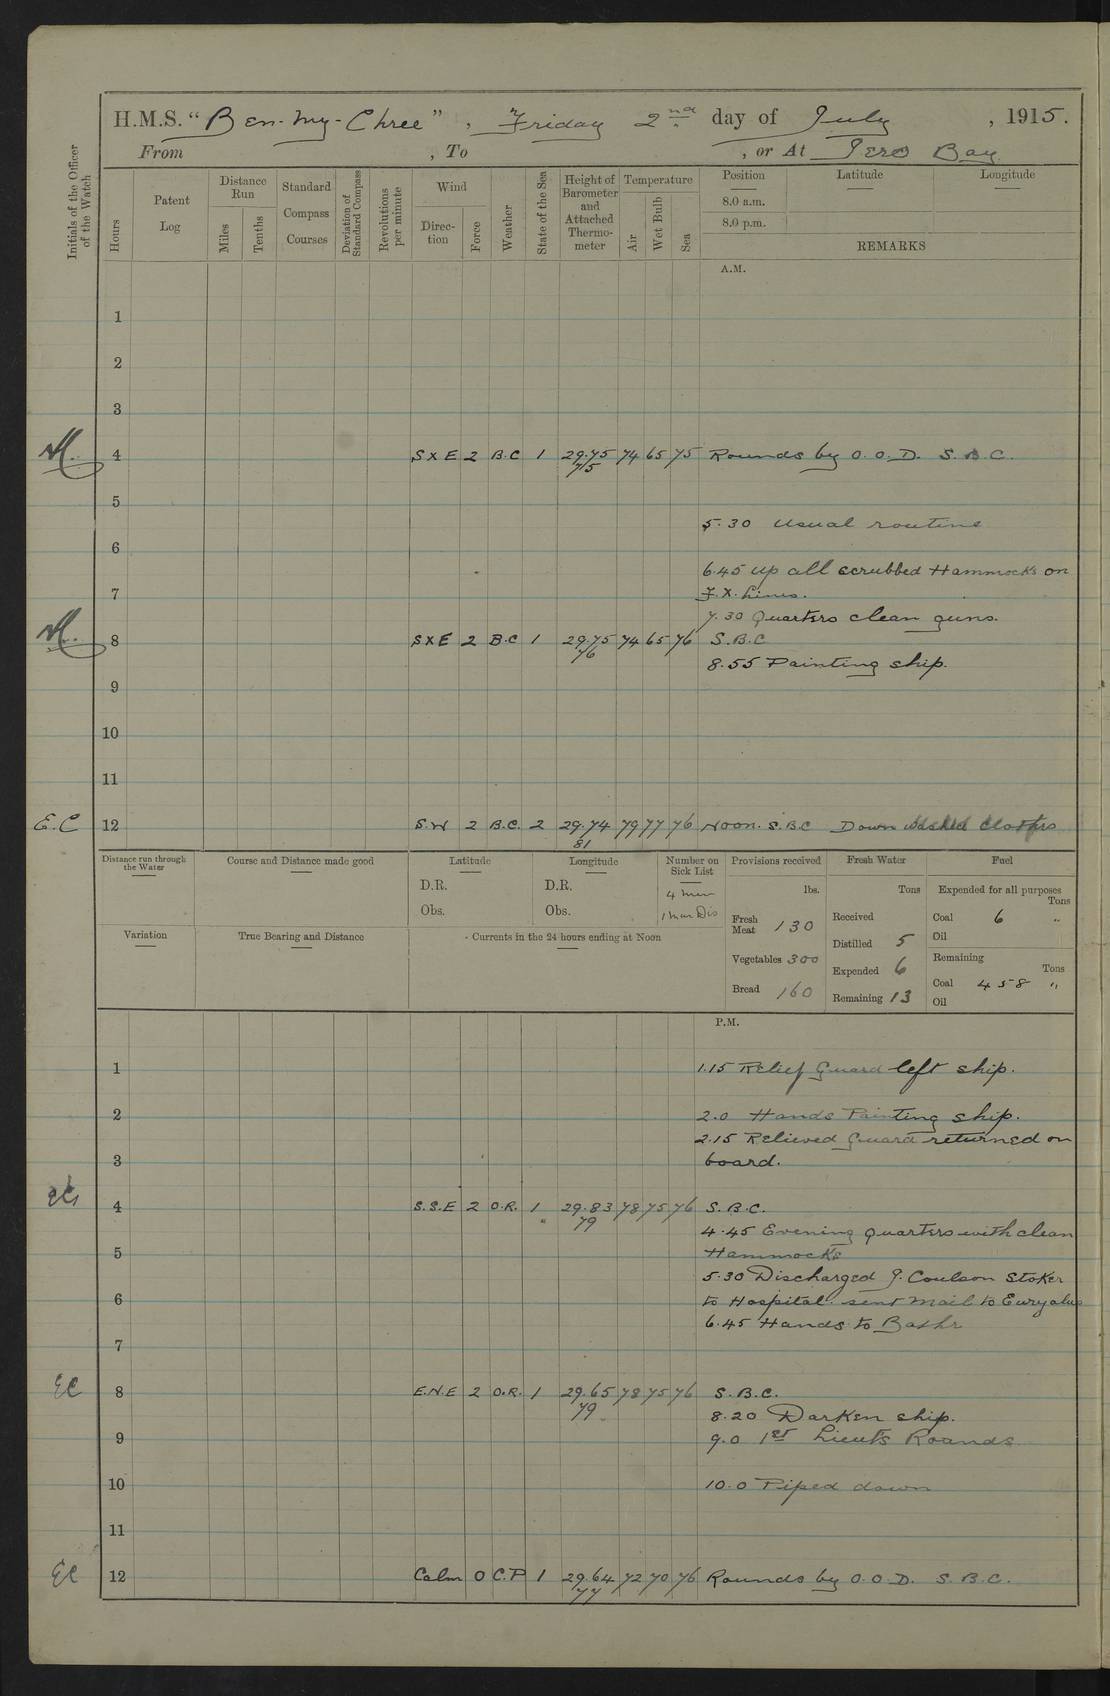 H.M.S. "Ben-my-Chree", Friday 2nd day of July, 1915.
From , To , or At Iero Bay
Initials of the Officer of the Watch
Hours
Patent Log
Distance Run
Miles
Tenths
Standard Compass Courses
Deviation of Standard Compass
Revolutions per minute
Wind
Direction
Force
Weather
State of the Sea
Height of Barometer and Attached Thermometer
Temperature
Air
Wet Bulb
Sea
Position
Latitude
Longitude
8.0 a.m.
8.0 p.m.
REMARKS
A.M.
1
2
3
4 S X E 2 B.C 1 29.75 74 65 75 Rounds by O.O.D. S.B.C.
75
5
5.30 Usual routine
6
6.45 Up all scrubbed Hammocks on
7 F.X. Lines.
7.30 Quarters clean guns.
8 S X E 2 B.C 1 29.75 74 65 76 S.B.C
76
8.55 Painting ship.
9
10
11
E.C 12 S.W 2 B.C. 2 29.74 79 77 76 Noon. S.B.C Down washed clothes
81
Distance run through the Water
Course and Distance made good
Latitude
D.R.
Obs.
Longitude
D.R.
Obs.
Number on Sick List
4 men
1 man Dis
Provisions received
lbs.
Fresh Meat 130
Vegetables 300
Bread 160
Fresh Water
Tons
Received
Distilled 5
Expended 6
Remaining 13
Fuel
Expended for all purposes
Tons
Coal 6 "
Oil
Remaining
Tons
Coal 458 "
Oil
Variation
True Bearing and Distance
Currents in the 24 hours ending at Noon
P.M.
1 1.15 Relief Guard left ship.
2 2.0 Hands Painting ship.
2.15 Relieved Guard returned on
3 board.
4 S.S.E 2 O.R. 1 29.83 78 75 76 S.B.C.
79
4.45 Evening quarters with clean
5 Hammocks
5.30 Discharged J. Coulson Stoker
6 to Hospital. sent Mail to Euryalus
6.45 Hands to Bathe
7
EC 8 E.N.E 2 O.R. 1 29.65 78 75 76 S.B.C.
79
8.20 Darken ship.
9 9.0 1st Lieuts Rounds
10 10.0 Piped down
11
EC 12 Calm 0 C.P 1 29.64 72 70 76 Rounds by O.O.D. S.B.C.
77